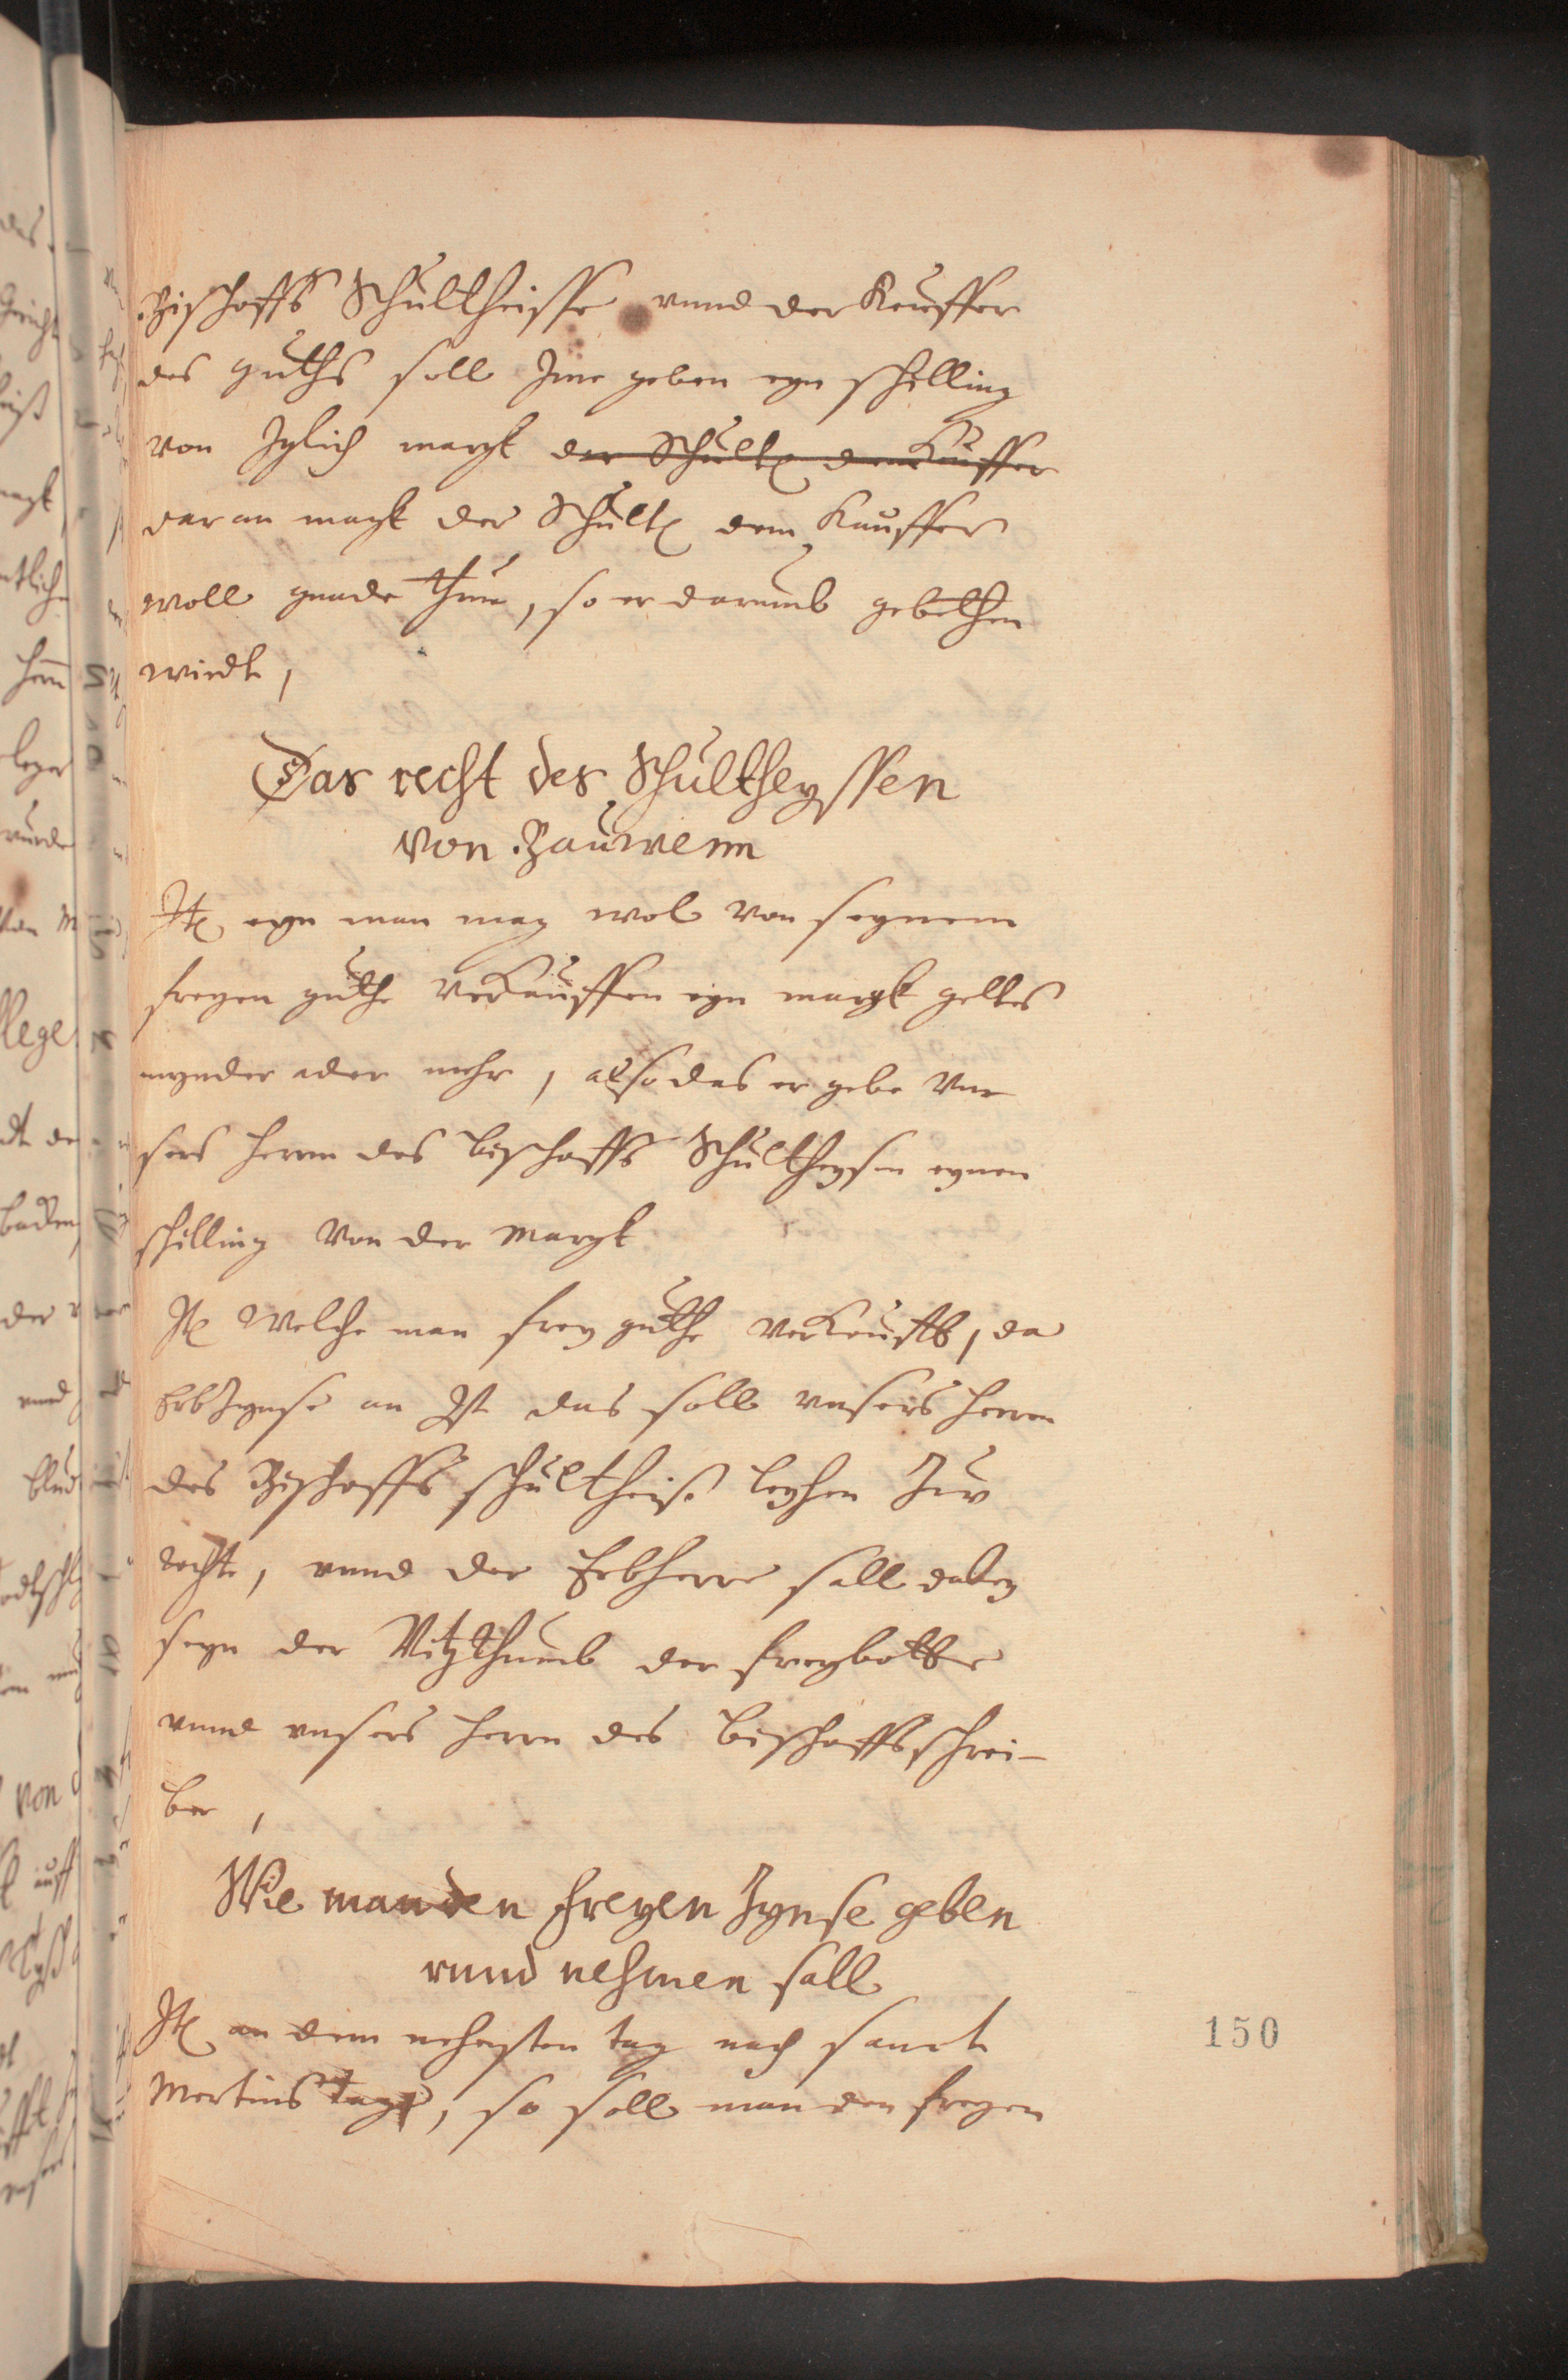 Bischoffs Schultheisse vnnd der Keuffer
des guths soll Jme geben eyn schilling
von Jglich margk der Schult dem Kauffer
daran magk der Schult dem Kauffer
woll gnade thun, so er darumb gebethen
wirdt,
Das recht des Schultheyssen
von Bauwenn
Jt eyn man mag wol von seynem
freyen guthe verkauffen eyn margk geltes
mynder ader mehr, also das er gebe vnn
sers herrn des bischoffs Schultheysen eynen
schilling von der margk
Jt Welche man frey guthe verkeufft, da
Erbzynse an Jst das soll vnsers herrn
des Bischoffs schultheiß leyhen zuu
rechte, vnnd der Erbherre sall dabey
seyn der Vitzthumb der freybotte
vnnd vnsers herrn des bischoffs schrei-
ber,
Wie man den freyen Zynse geben
vnnd nehmen sall
Jt an dem nehesten tag nach sanct
Mertins tage, so soll man den freyen
150